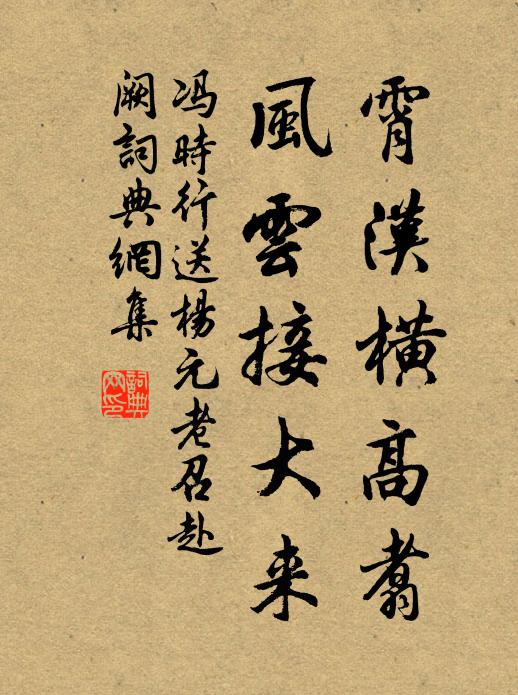 霄漢橫高翥
風雲接大来
冯時行送楊元老召赴
阙詞典網集
詞典网印